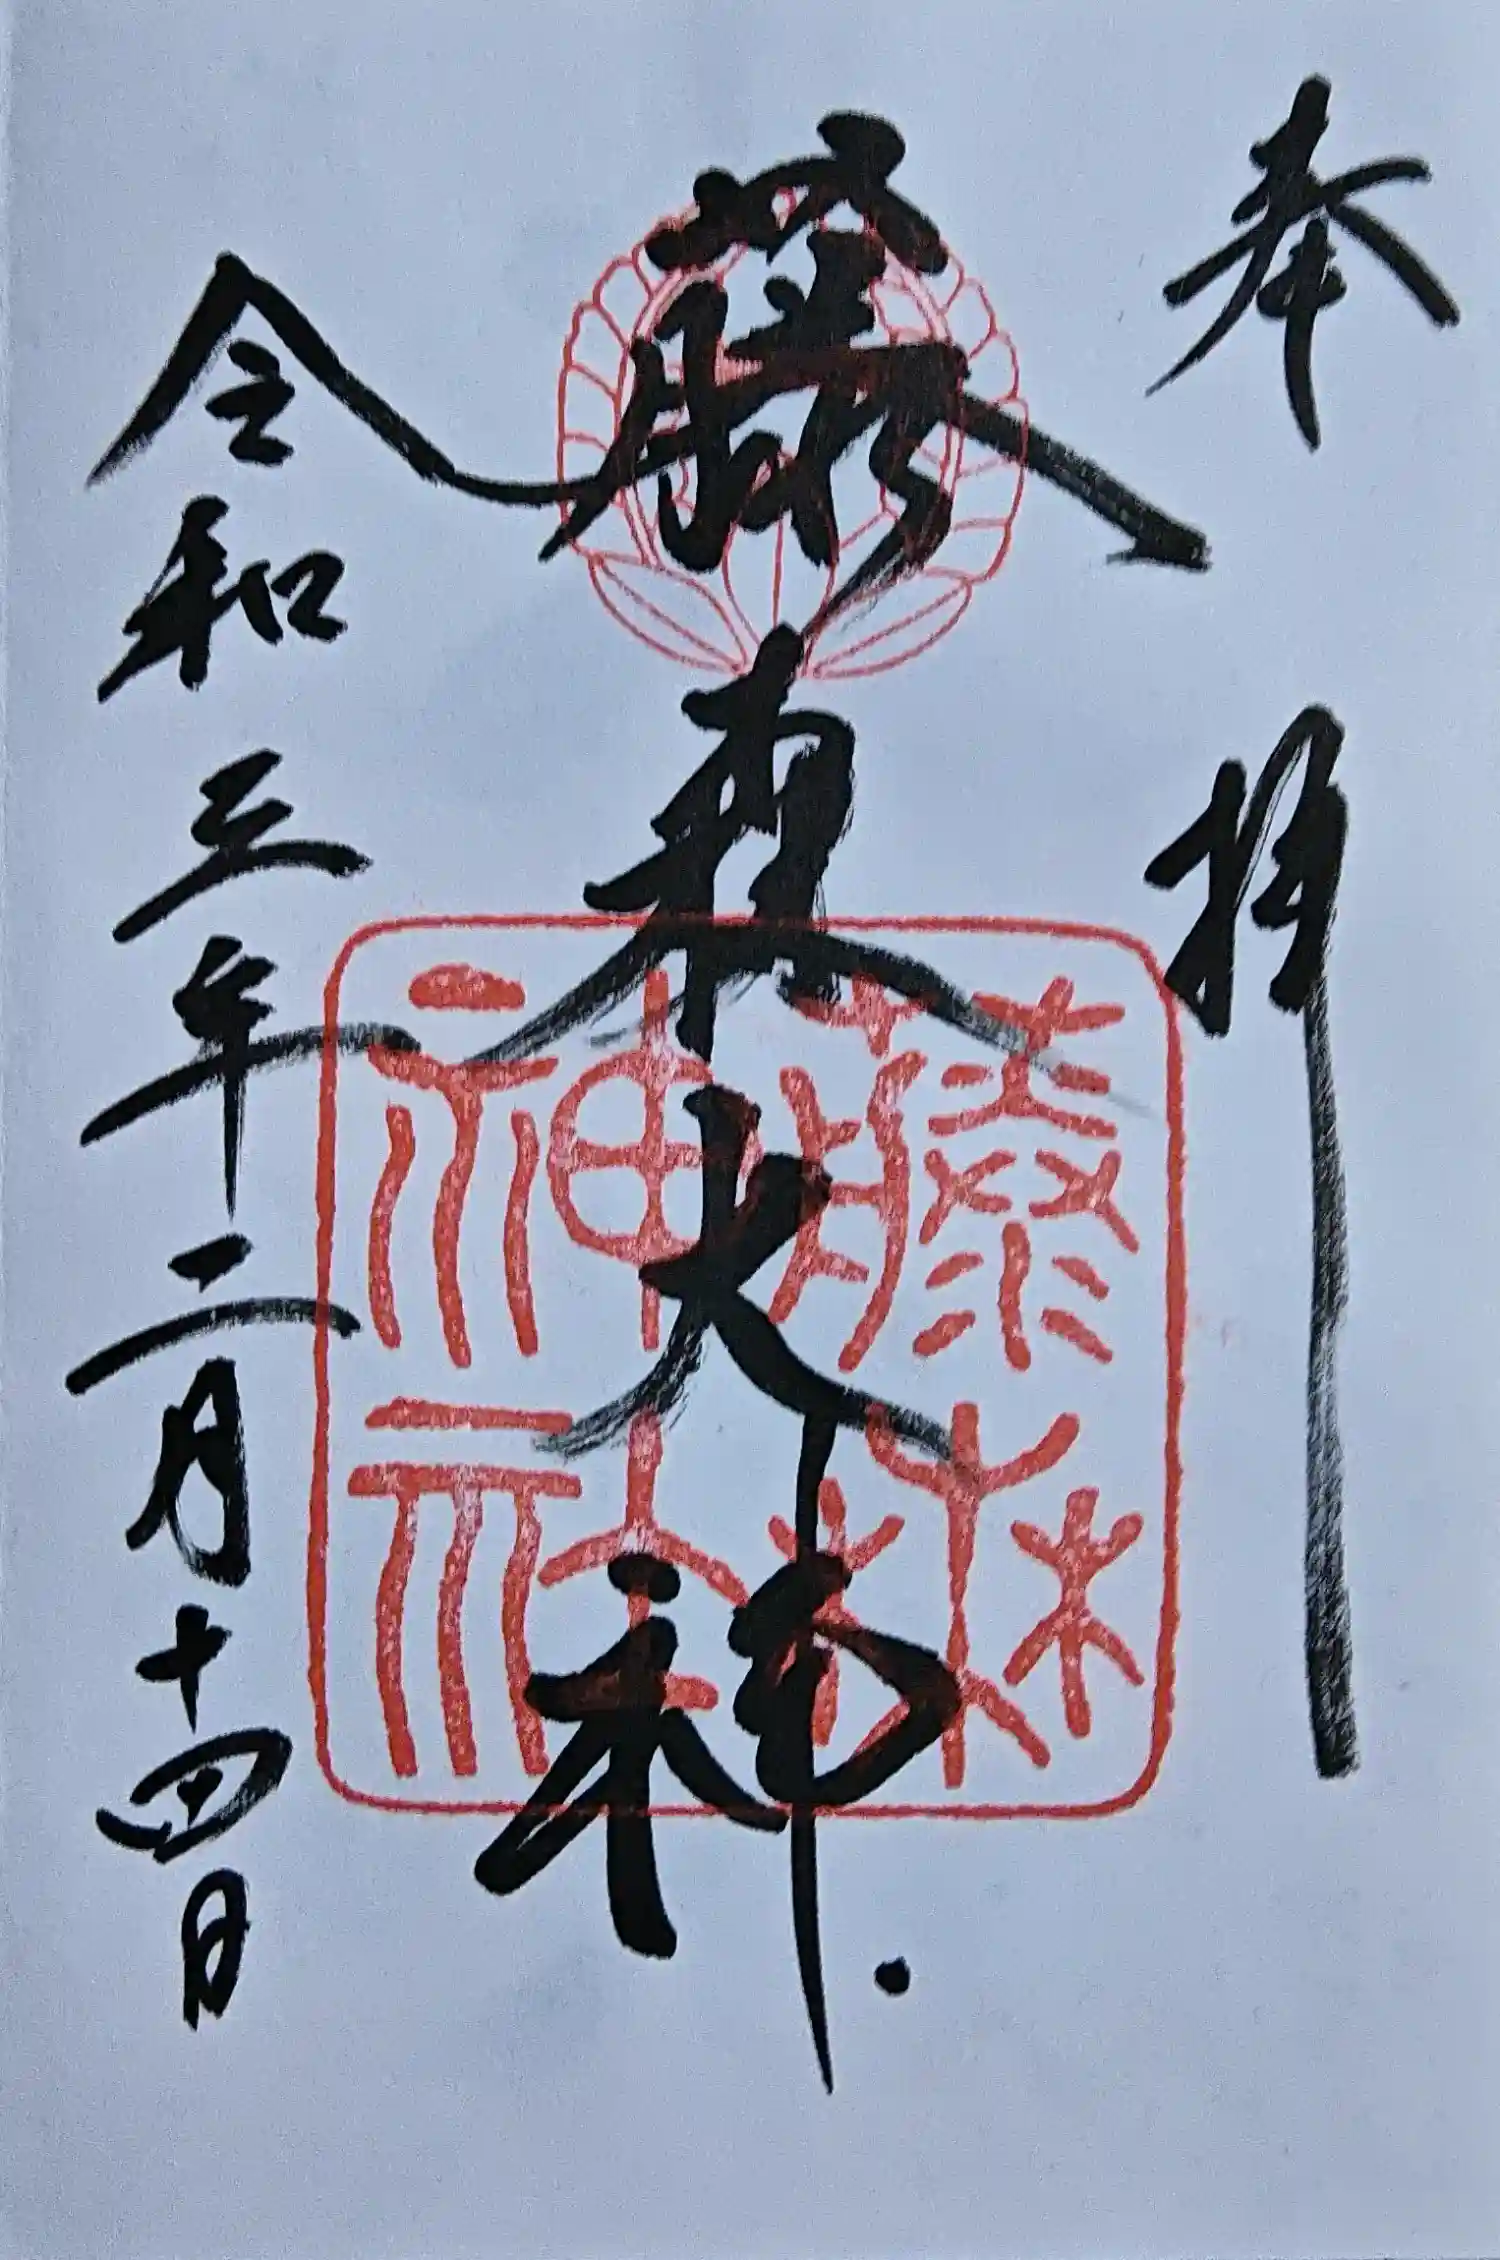 奉拝
藤森大神
令和三年二月十四日
藤森
神社